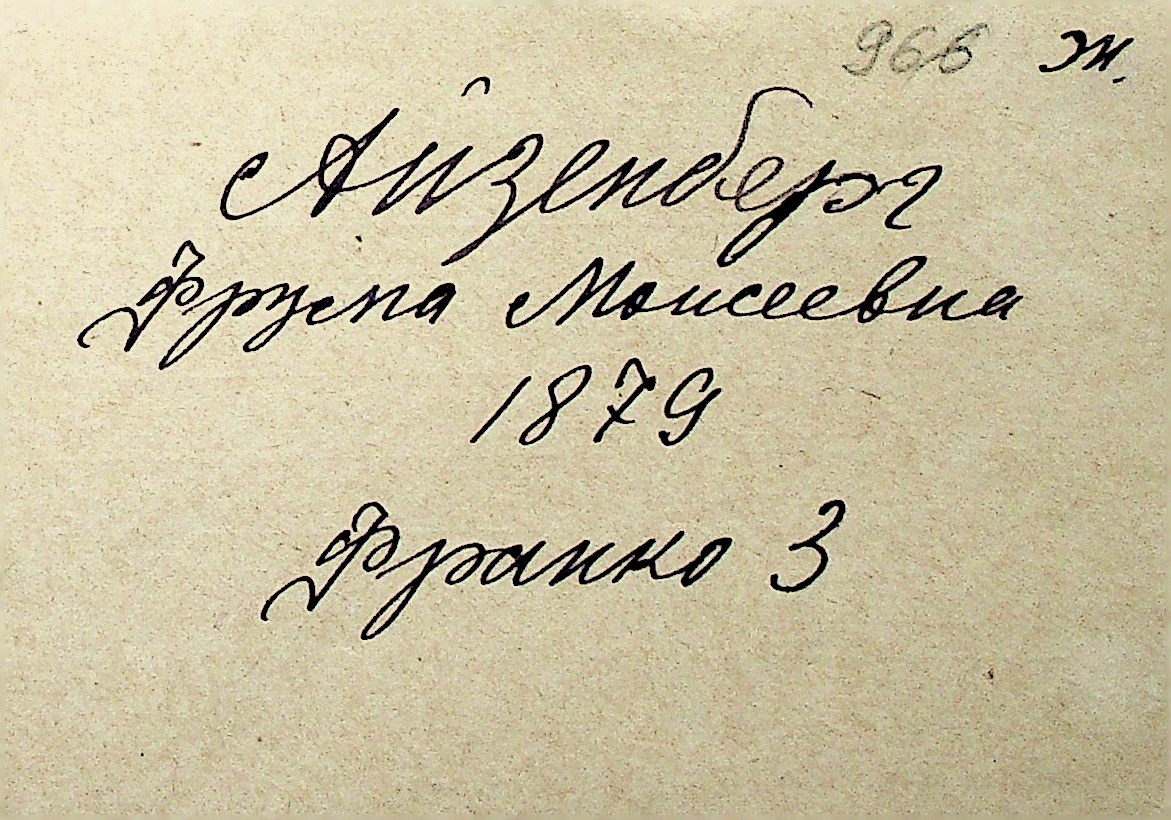 966 ж.
Айзенберг
Фрума Моисеевна
1879
Франко 3